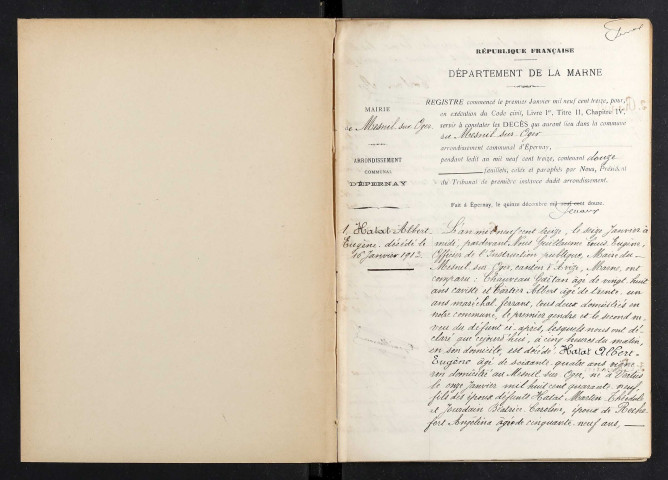 RÉPUBLIQUE FRANÇAISE
DÉPARTEMENT DE LA MARNE
MAIRIE
de Mesnil sur Oger
ARRONDISSEMENT
COMMUNAL
D'ÉPERNAY
REGISTRE commencé le premier Janvier mil neuf cent treize, pour,
en exécution du Code civil, Livre Ier, Titre II, Chapitre IV,
servir à constater les DÉCÈS qui auront lieu dans la commune
de Mesnil sur Oger
arrondissement communal d'Épernay,
pendant ledit an mil neuf cent treize, contenant douze
feuillets, cotés et paraphés par Nous, Président
du Tribunal de première instance dudit arrondissement.
Fait à Épernay, le quinze décembre mil neuf cent douze.
1. Hatat Albert
Eugène, décédé le
16 Janvier 1913.
L'an mil neuf cent treize, le seize Janvier à
midi, pardevant Nous Guillaume Louis Eugène,
Officier de l'Instruction publique, Maire du
Mesnil sur Oger, canton d'Avize, Marne, ont
comparu : Chauveau Gaëtan âgé de vingt huit
ans caviste et Cartier Albert âgé de trente un
ans maréchal ferrant, tous deux domiciliés en
notre commune, le premier gendre et le second ne-
veu du défunt ci-après, lesquels nous ont dé-
claré que cejourd'hui, à cinq heures du matin,
en son domicile, est décédé Hatat Albert-
Eugène âgé de soixante quatre ans vigne-
ron domicilié au Mesnil sur Oger, né à
le onze Janvier mil huit cent quarante neuf,
fils des époux défunts Hatat Martin Théodule
et Jourdain Béatrix Caroline, époux de Roche
fort Angelina âgée de cinquante neuf ans,